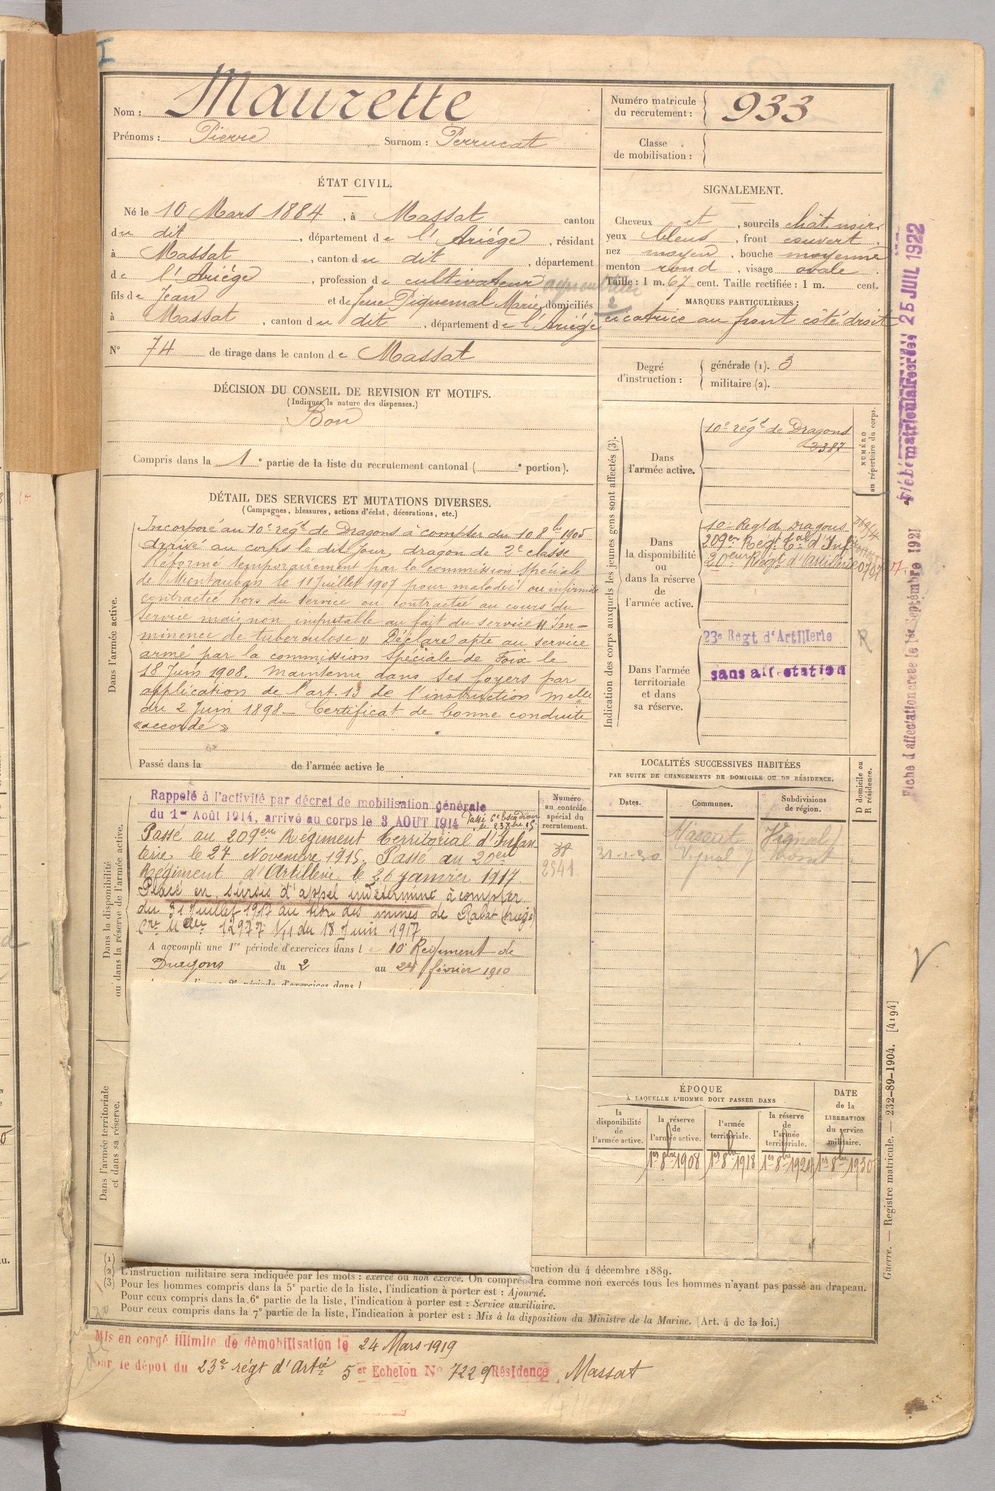 I
Nom : Maurette
Prénoms : Pierre Surnom : Perrucat
Numéro matricule du recrutement : 933
Classe de mobilisation :
ÉTAT CIVIL.
Né le 10 Mars 1884, à Massat canton
du dit, département de l'Ariége, résidant
à Massat, canton du dit, département
de l'Ariége, profession de cultivateur
fils de Jean et de feue Piquemal Marie, domiciliés
à Massat, canton du dit, département de l'Ariége
N° 74 de tirage dans le canton de Massat
SIGNALEMENT.
Cheveux et, sourcils chat noir
yeux bleus, front couvert.
nez moyen, bouche moyenne
menton rond, visage ovale
Taille : 1 m. 67 cent. Taille rectifiée : 1 m. cent.
MARQUES PARTICULIÈRES :
cicatrice au front côté droit
Degré d'instruction : générale (1). 3
militaire (2).
DÉCISION DU CONSEIL DE REVISION ET MOTIFS.
(Indiquer la nature des dispenses.)
Bon
Compris dans la 1e partie de la liste du recrutement cantonal ( e portion).
DÉTAIL DES SERVICES ET MUTATIONS DIVERSES.
(Campagnes, blessures, actions d'éclat, décorations, etc.)
Dans l'armée active.
Incorporé au 10e régt de Dragons à compter du 10 8bre 1905
arrivé au corps le dit jour, dragon de 2e classe
Réformé temporairement par la commission spéciale
de Montauban le 11 Juillet 1907 pour maladies ou infirmité
contractée hors du service ou contractée au cours du
service mais non imputable au fait du service "Im-
minence de tuberculose" Déclaré apte au service
armé par la commission Spéciale de Foix le
18 Juin 1908. Maintenu dans ses foyers par
application de l'art. 13 de l'instruction melle
du 2 Juin 1898 — Certificat de bonne conduite
"accordé"
Passé dans la de l'armée active le
Dans la disponibilité ou dans la réserve de l'armée active.
Rappelé à l'activité par décret de mobilisation générale
du 1er Août 1914, arrivé au corps le 3 AOUT 1914
Passé au 209eme Régiment Territorial d'Infan
terie le 27 Novembre 1915. Passé au 20eme
Régiment d'Artillerie le 26 janvier 1917
Placé en sursis d'appel indéterminé à compter
du 31 Juillet 1917 au titre des mines de Rabat (Ariège)
12977 1/11 du 18 Juin 1917
A accompli une 1re période d'exercices dans le 10e Régiment de
Dragons du 2 au 24 février 1910
Numéro au contrôle spécial du recrutement.
2541
Dans l'armée territoriale et dans sa réserve.
Indication des corps auxquels les jeunes gens sont affectés (3).
NUMÉRO au répertoire du corps.
Dans l'armée active.
10e régt de Dragons
2387
Dans la disponibilité ou dans la réserve de l'armée active.
10e Regt de Dragons
209eme Regt Tal d'Infie
20eme Regt d'artillerie
Dans l'armée territoriale et dans sa réserve.
23e Regt d'Artillerie
sans affectation
R
LOCALITÉS SUCCESSIVES HABITÉES
PAR SUITE DE CHANGEMENTS DE DOMICILE OU DE RÉSIDENCE.
D domicile ou R résidence.
Dates. Communes. Subdivisions de région.
ÉPOQUE
À LAQUELLE L'HOMME DOIT PASSER DANS
la disponibilité de l'armée active.
la réserve de l'armée active.
l'armée territoriale.
la réserve de l'armée territoriale.
DATE de la LIBÉRATION du service militaire.
1er 8bre 1908 1er 8bre 1918 1er 8bre 1924 1er 8bre 1930
ruction du 4 décembre 1889.
(1)
(2) L'instruction militaire sera indiquée par les mots : exercé ou non exercé. On comprendra comme non exercés tous les hommes n'ayant pas passé au drapeau.
(3) Pour les hommes compris dans la 5e partie de la liste, l'indication à porter est : Ajourné.
Pour ceux compris dans la 6e partie de la liste, l'indication à porter est : Service auxiliaire.
Pour ceux compris dans la 7e partie de la liste, l'indication à porter est : Mis à la disposition du Ministre de la Marine. (Art. 4 de la loi.)
Mis en congé illimité de démobilisation le 24 Mars 1919
par le dépôt du 23e régt d'Artie 5er Echelon N° 7229 Résidence Massat
Guerre. — Registre matricule. — 232-89-1904. [4194]
25 JUIL 1922
Fiche d'affectation créée le 1er Septembre 1921
V